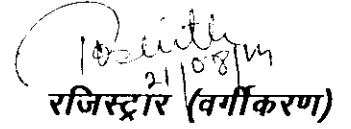 21/08/19
रजिस्ट्रार (वर्गीकरण)